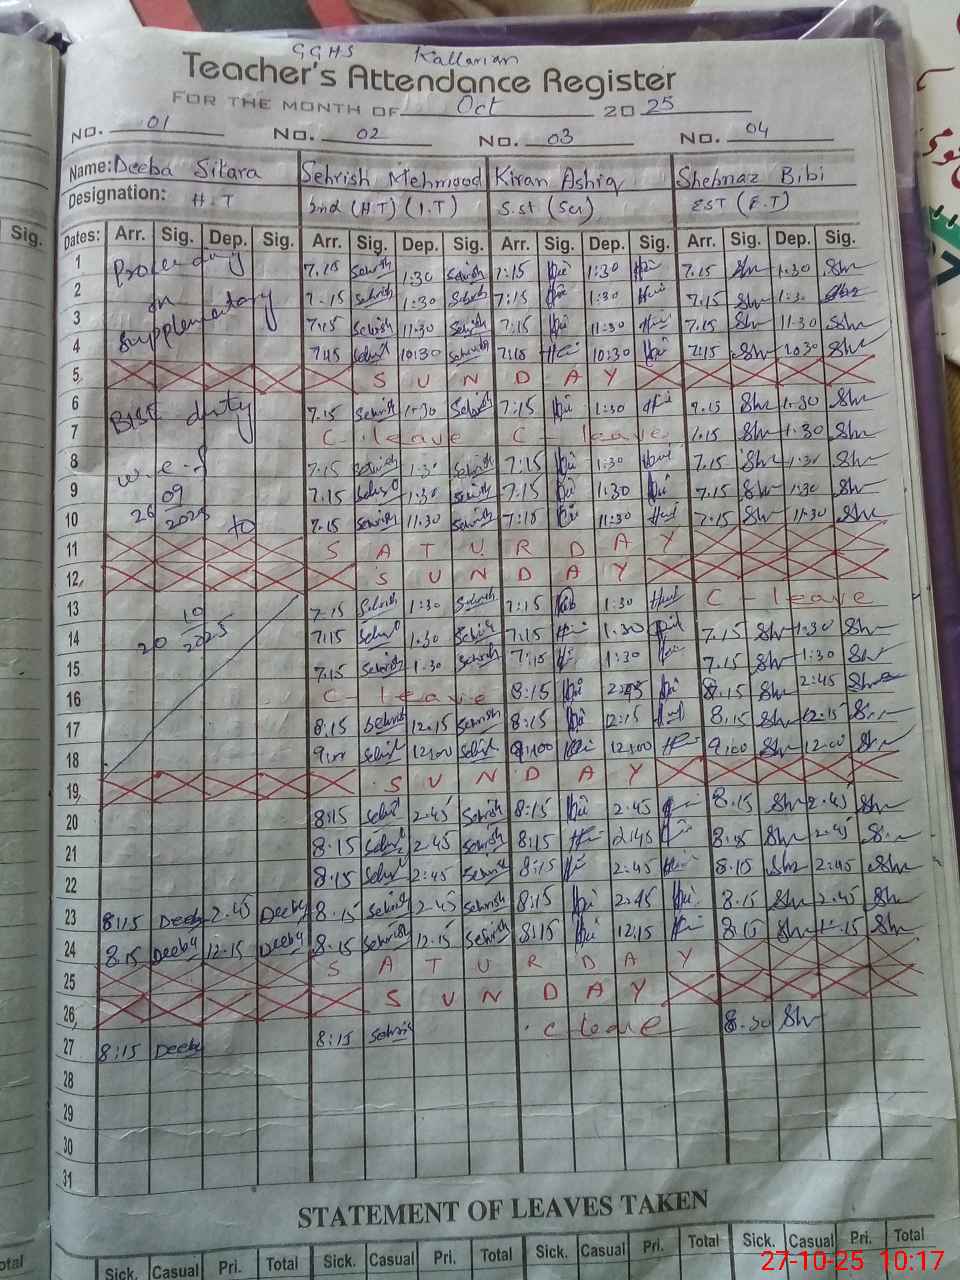 GGHS Kallarian
Teacher's Attendance Register
FOR THE MONTH OF Oct 2025
No. 01 No. 02 No. 03 No. 04
Name: Deeba Sitara Sehrish Mehmood Kiran Ashiq Shehnaz Bibi
Designation: H.T 2nd (H.T) (I.T) S.st (Sci) EST (F.T)
Sig. Dates: Arr. Sig. Dep. Sig. Arr. Sig. Dep. Sig. Arr. Sig. Dep. Sig. Arr. Sig. Dep. Sig.
1 duty 7.15 Sehrish 1:30 Sehrish 7:15 1:30 7.15 Shr 1.30 Shr
2 in 7.15 Sehrish 1:30 Sehrish 7:15 1:30 7.15 Shr 1:3 Shr
3 Supplementary 7:15 Sehrish 11.30 Sehrish 7:15 11:30 7.15 Shr 11.30 Shr
4 7:15 10:30 Sehrish 7:15 10:30 7:15 Shr 10.30 Shr
5 S U N D A Y
6 BISE duty 7.15 Sehrish 1:30 Sehrish 7:15 1:30 7.15 Shr 1.30 Shr
7 C - leave C - leave 7.15 Shr 1.30 Shr
8 w.e.f 7.15 Sehrish 1:3 Sehrish 7:15 1:30 7.15 Shr 1:3 Shr
9 09 7.15 1:30 Sehrish 7.15 1:30 7.15 Shr 1:30 Shr
10 26 2025 to 7.15 Sehrish 11.30 Sehrish 7:15 11:30 7:15 Shr 11.30 Shr
11 S A T U R D A Y
12 S U N D A Y
13 10 7.15 Sehrish 1:30 Sehrish 7:15 1:30 C - leave
14 20 2025 7:15 1.30 Sehrish 7.15 1.30 7.15 Shr 1:30 Shr
15 7.15 Sehrish 1.30 Sehrish 7:15 1:30 7.15 Shr 1:30 Shr
16 C - leave 8:15 2:45 8.15 Shr 2:45 Shr
17 8.15 Sehrish 12.15 Sehrish 8:15 12:15 8.15 Shr 12.15 Shr
18 9:00 12:00 Sehrish 9:00 12:00 9:00 Shr 12.00 Shr
19 S U N D A Y
20 8:15 2.45 Sehrish 8:15 2.45 8.15 Shr 2.45 Shr
21 8.15 2.45 Sehrish 8:15 2:45 8:15 Shr 2.45 Shr
22 8.15 2:45 Sehrish 8:15 2:45 8.15 Shr 2:45 Shr
23 8:15 Deeba 2.45 Deeba 8.15 Sehrish 2.45 Sehrish 8:15 2:45 8.15 Shr 2.45 Shr
24 8.15 Deeba 12.15 Deeba 8.15 Sehrish 12.15 Sehrish 8:15 12:15 8:15 Shr 12.15 Shr
25 S A T U R D A Y
26 S U N D A Y
27 8:15 Deeba 8:15 Sehris C leave 8.30 Shr
28
29
30
31
STATEMENT OF LEAVES TAKEN
otal Sick. Casual Pri. Total Sick. Casual Pri. Total Sick. Casual Pri. Total Sick. Casual Pri. Total
27-10-25 10:17